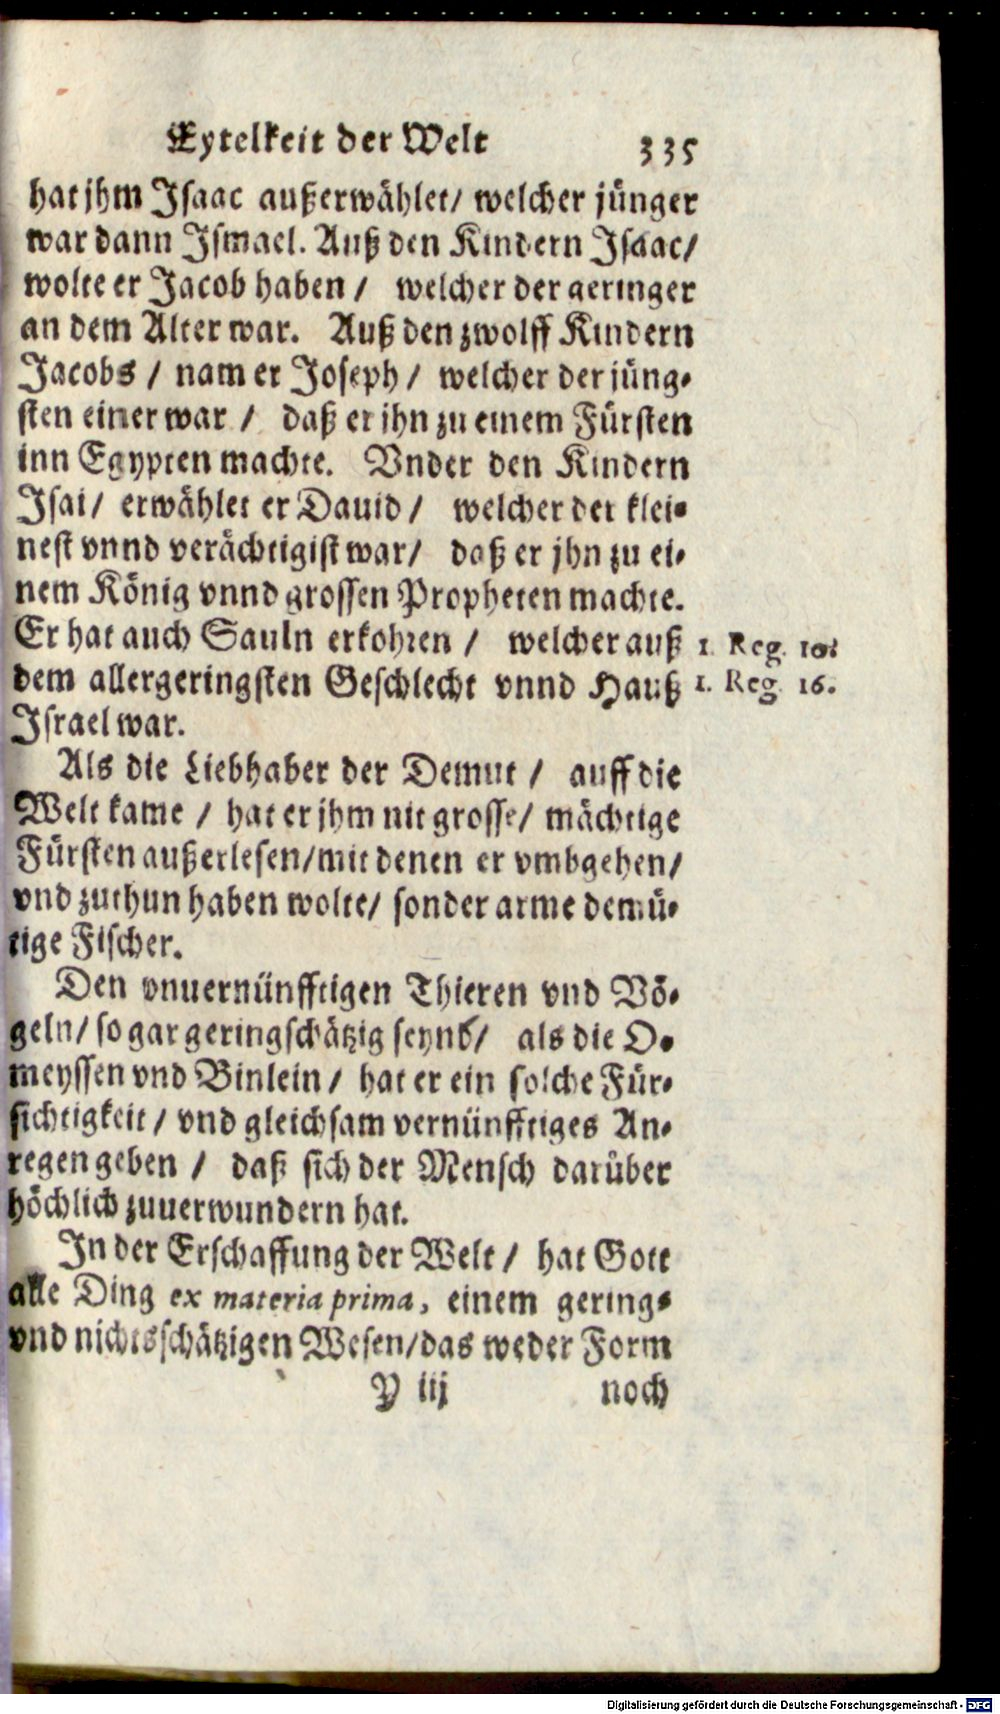 Eytelkeit der Welt 335
hat jhm Isaac außerwählet/ welcher jünger
war dann Ismael. Auß den Kindern Isaac/
wolte er Jacob haben / welcher der geringer
an dem Alter war. Auß den zwolff Kindern
Jacobs / nam er Joseph / welcher der jüng-
sten einer war / daß er jhn zu einem Fürsten
inn Egypten machte. Vnder den Kindern
Isai / erwählet er Dauid / welcher der klei-
nest vnnd verächtigist war/ daß er jhn zu ei-
nem König vnnd grossen Propheten machte.
Er hat auch Sauln erkohren / welcher auß
1. Reg. 10.
dem allergeringsten Geschlecht vnnd Hauß
1. Reg. 16.
Israel war.
Als die Liebhaber der Demut / auff die
Welt kame / hat er jhm nit grosse/ mächtige
Fürsten außerlesen/mit denen er vmbgehen/
vnd zuthun haben wolte/ sonder arme demü-
tige Fischer.
Den vnuernünfftigen Thieren vnd Vö-
geln/ so gar geringschätzig seynd/ als die O-
meyssen vnd Binlein / hat er ein solche Für-
sichtigkeit / vnd gleichsam vernünfftiges An-
regen geben / daß sich der Mensch darüber
höchlich zuuerwundern hat.
In der Erschaffung der Welt / hat Gott
alle Ding ex materia prima, einem gering-
vnd nichtsschätzigen Wesen/das weder Form
Y iij noch
Digitalisierung gefördert durch die Deutsche Forschungsgemeinschaft - DFG